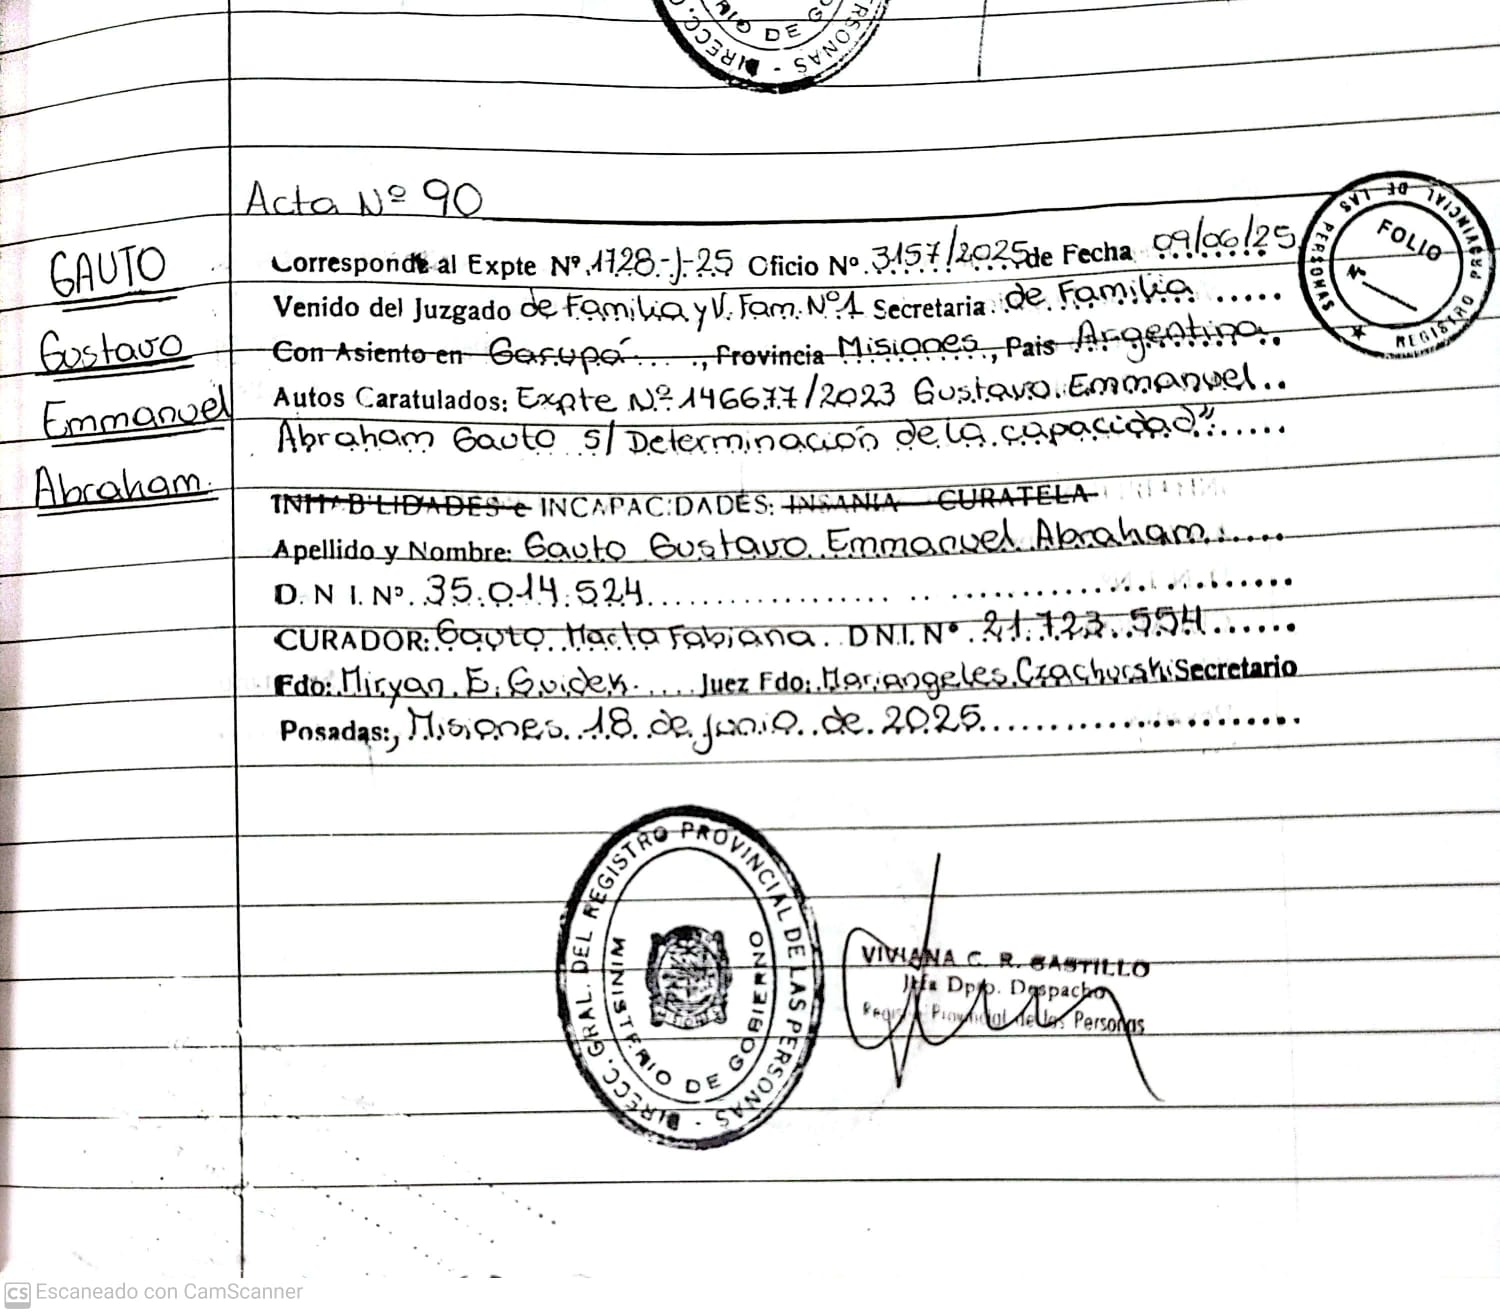 DIRECC. PERSONAS - RIO DE GO
Acta Nº 90
GAUTO
Gustavo
Emmanuel
Abraham.
Corresponde al Expte Nº.1728.-J-25 Oficio Nº.3157/2025 de Fecha 09/06/25
Venido del Juzgado de Familia y V. Fam. Nº1 Secretaria de Familia
Con Asiento en Garupá....., Provincia Misiones, Pais Argentina.
Autos Caratulados: Expte Nº 146677/2023 Gustavo Emmanuel..
Abraham Gauto s/ Determinación de la capacidad"......
INHABILIDADES e INCAPACIDADES: INSANIA CURATELA
Apellido y Nombre: Gauto Gustavo Emmanuel Abraham.....
D.N I.Nº. 35.014.524................
CURADOR: Gauto Marta Fabiana. D N.I. Nº 21.723.554......
Fdo: Miryan. E. Guidek.... Juez Fdo: Mariangeles Czachurski Secretario
Posadas:, Misiones 18 de junio de 2025................
REGISTRO PROVINCIAL DE LAS PERSONAS
FOLIO
Nº
DIRECC. GRAL. DEL REGISTRO PROVINCIAL DE LAS PERSONAS -
MINISTERIO DE GOBIERNO
VIVIANA C. R. CASTILLO
Jefa Dpto. Despacho
Registro Provincial de las Personas
CS Escaneado con CamScanner